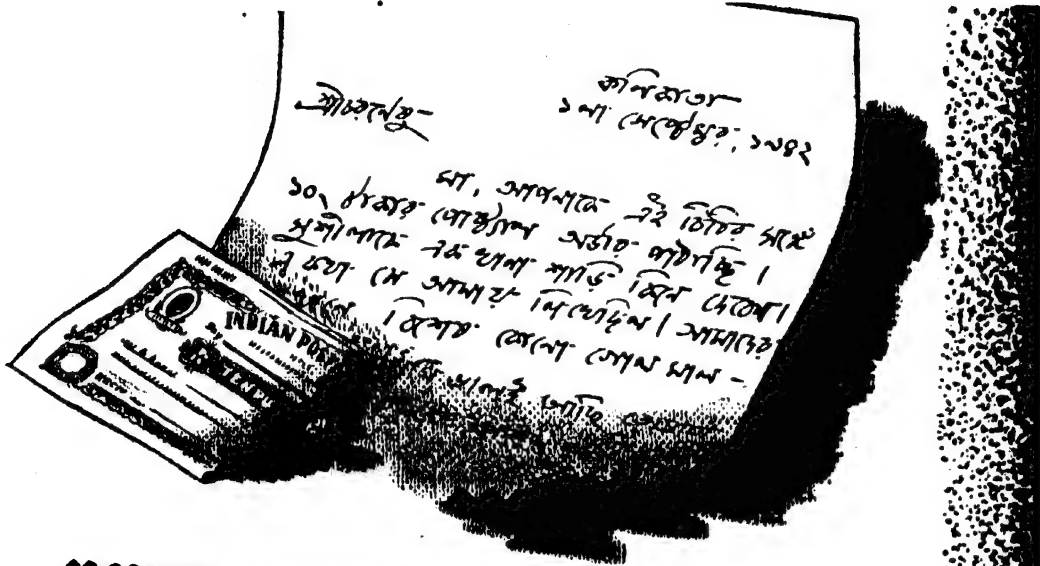 কলিকাতা
শ্রীচরণেষু-
১লা সেপ্টেম্বর, ১৯৪২
মা, আপনাকে এই চিঠির সঙ্গে
১০৲ টাকার পোষ্ট্যাল অর্ডার পাঠাচ্ছি।
সুশীলাকে এক খানা শাড়ি কিনে দেবেন।
এ কথা সে আমায় লিখেছিল। আমাদের
বিশেষ কোনো গোল মাল -
ভালই আছি
INDIAN POS
TEN